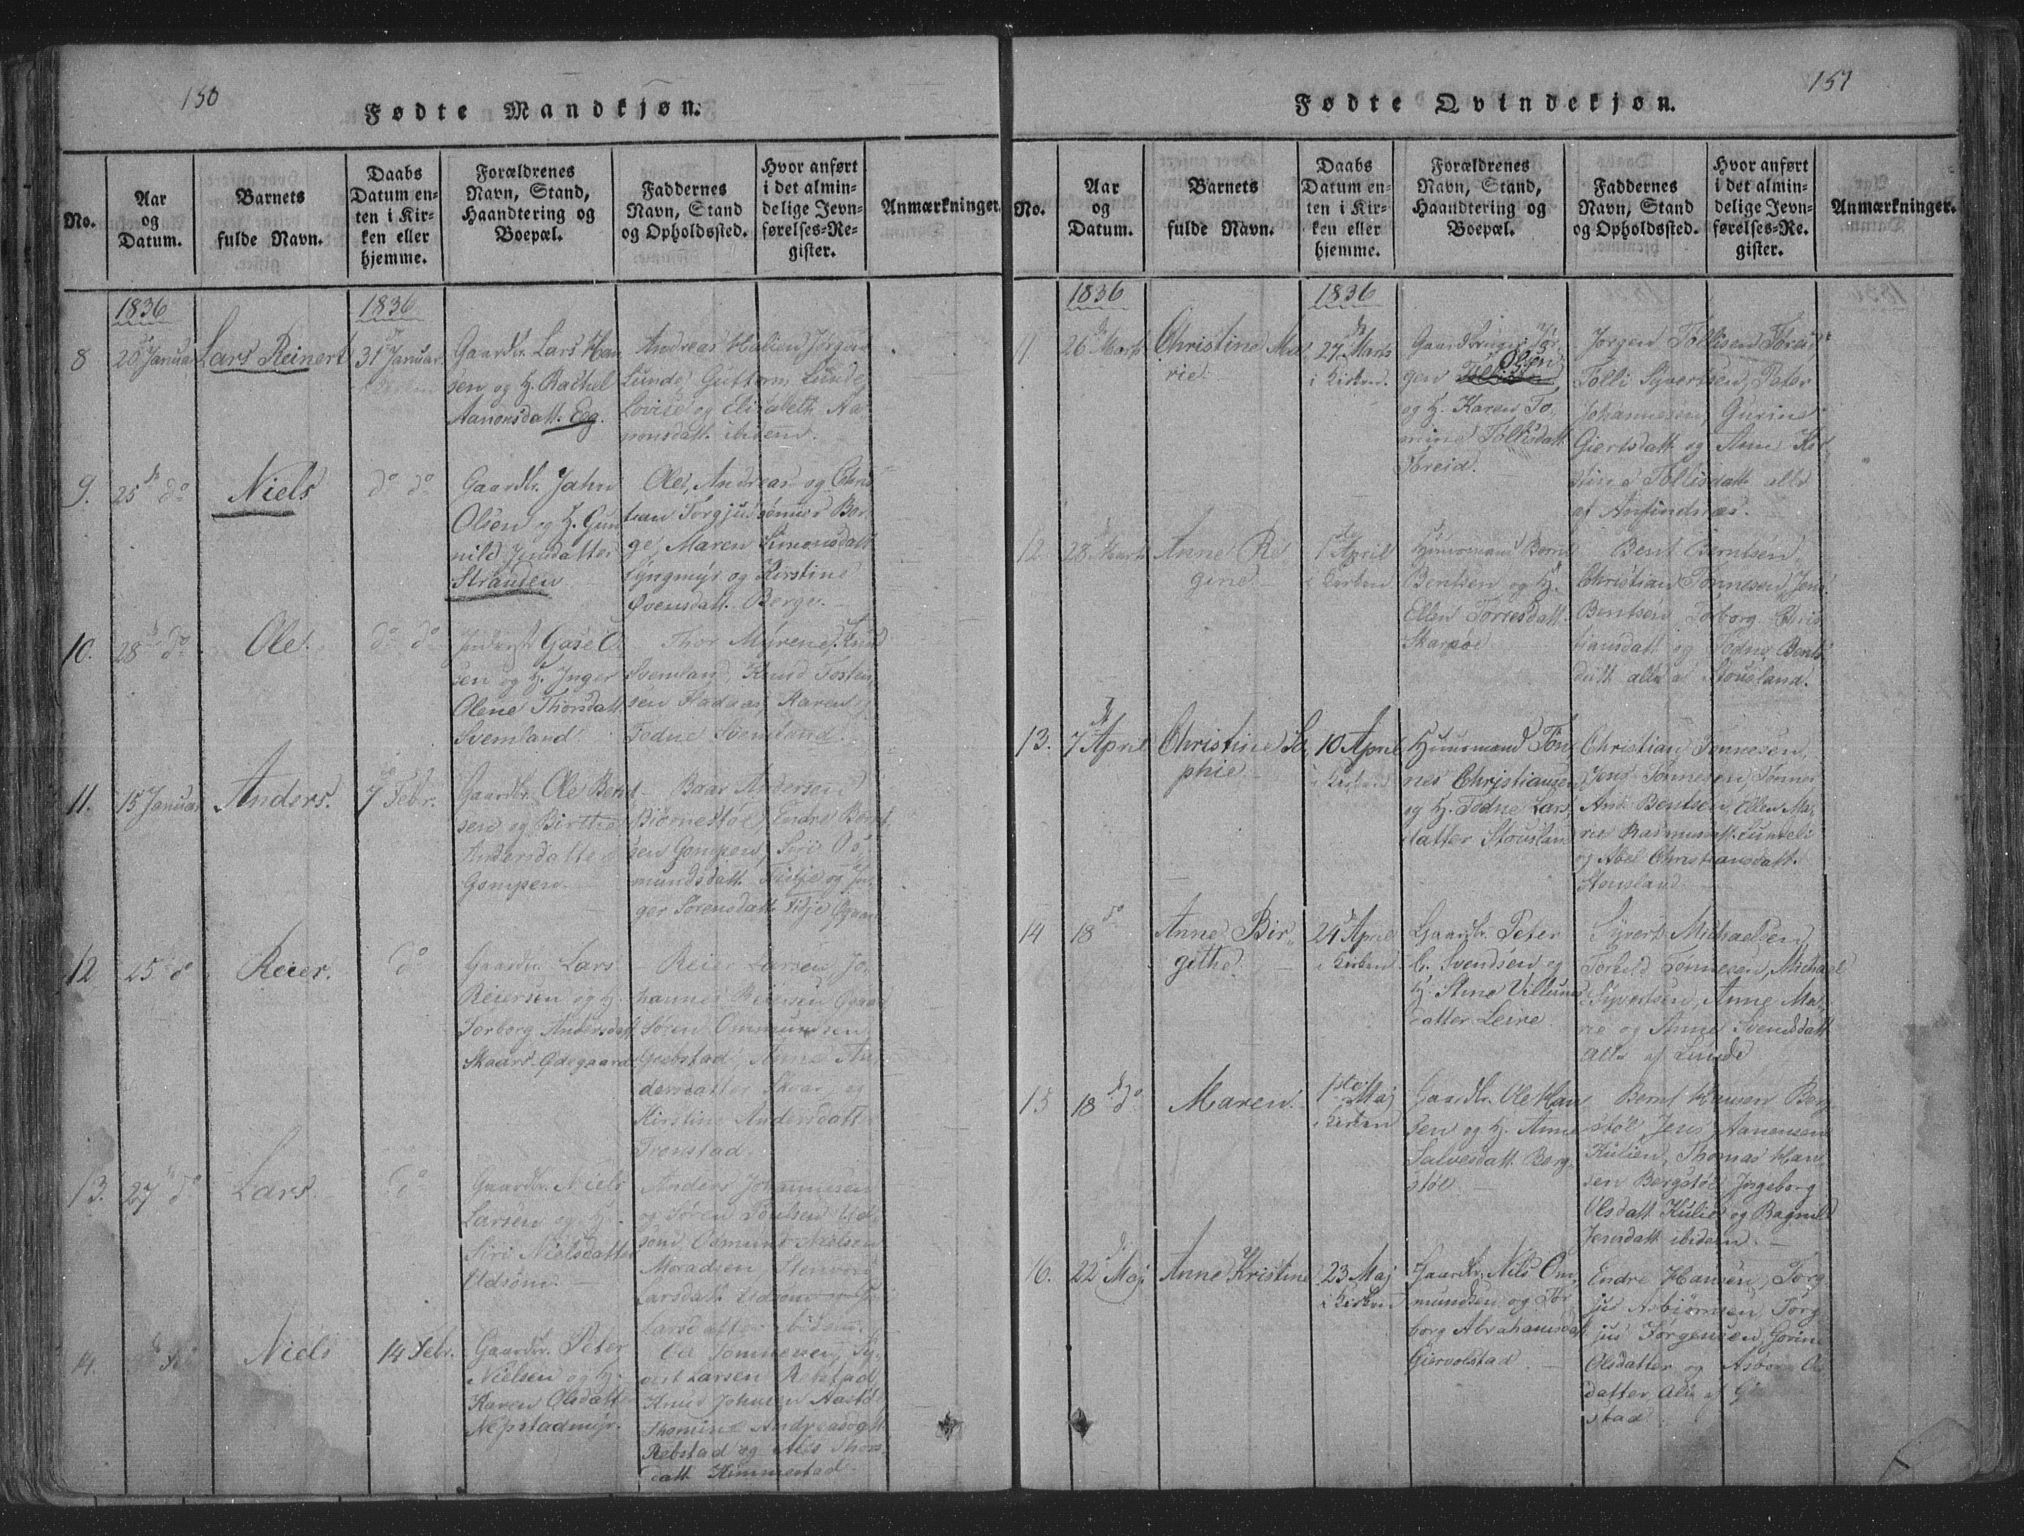 150
Fødte Mandkjøn.
No.
Aar
og
Datum.
Barnets
fulde Navn.
Daabs
Datum en-
ten i Kir-
ken eller
hjemme.
Forældrenes
Navn, Stand,
Haandtering og
Boepæl.
Faddernes
Navn, Stand
og Opholdssted.
Hvor anført
i det almin-
delige Jevn-
førelses-Re-
gister.
Anmærkninger.
1836
1836
8
20 Januar
Lars Reinert
31 Januar
Gaardbr. Lars Han
sen og H. Rachel
Aanonsdatt. Eeg.
Andreas
Lunde, Guttorm Lunde,
Lovise og Elisabeth Aa-
nonsdatt. ibidem.
9.
25 do
Niels
do do
Gaardbr. Jahn
Olsen og H. Gun
nild Jensdatter
Stranden
Ole, Andreas og Chris
tian Torgjussønner Ber-
ge, Maren Simonsdatt.
Lyngmyr og Kirstine
Svensdatt. Berge. —
10.
28 do
Ole.
do do
O
sen og H. Inger
Olene Thorsdatt.
Svemland.
Thor Myrene, Knud
Svemland, Knud Tosten
sen Hadaas, Karen og
Todne Svemland.
11.
15 Januar
Anders.
7 Febr.
Gaardbr. Ole Bent
sen og Birthe
Andersdatter
Gompen. —
Baar Andersen
Biørnestøl, Endre Bent
sen Gompen, Siri Os-
mundsdatt. Tidje og In-
ger Sørensdatt. Tidje
12
25 do
Reier.
do
Gaardbr. Lars
Reiersen og H.
Torborg Andersdatt.
Skaar Ødegaard
Reier Larsen, Jo-
hannes Reiersen
Søren Ommundsen
Greibstad, Anne An
dersdatter Skaar, og
Kirstine Andersdatt.
Tronstad.
13.
27 do
Lars.
do
Gaardbr. Niels
Larsen og H.
Siri Nielsdatter
Udsøm. —
Anders Johannesen
og Søren
Osmund Nielsen
Larsdatt. Udsøm
Larsdatter ibidem.
14.
Niels
14 Febr.
Gaardbr. Peter
Nielsen og H.
Karen Olsdatter
Nepstadmyr.
Ole Tønnesen, Sy-
vert Larsen Rebstad,
Knud Johnsen Aastøl
Thomine Andreasdatt.
Rebstad og Thors
datt. Kimmestad.
151
Fødte Qvindekjøn.
No.
Aar
og
Datum.
Barnets
fulde Navn.
Daabs
Datum en-
ten i Kir-
ken eller
hjemme.
Forældrenes
Navn, Stand,
Haandtering og
Boepæl.
Faddernes
Navn, Stand
og Opholdssted.
Hvor anført
i det almin-
delige Jevn-
førelses-Re-
gister.
Anmærkninger.
1836
1836
11.
26 Marts
Christine Ma
rie
27 Marts
i Kirken.
Gaardbruger Jør
gen Olsen
og H. Karen To-
mine Tollisdatt.
Toreid.
Jørgen Tollisen Toreid
Tolli Syvertsen, Peter
Johannesen, Gurine
Giertsdatt. og Anne Kir
stine Tollisdatt. alle
af Anfindnæs.
12.
28 Marts
Anne Re
gine —
1 April
i Kirken
Huusmand Bernt
Bentsen og H.
Ellen Torresdatt.
Skarpøe
Bent Berntsen,
Christian Tønnesen, Jens
Bentsen, Torborg Chris
tiansdatt. og Todne Bents
datt. alle af Stousland.
13.
7 April
Christine So
phie —
10 April
i Kirken
Huusmand Tøn
nes Christiansen
og H. Todne Lars
datter Stousland
Christian Tønnesen,
Jens Tønnesen, Tønnes
And. Bentsen, Ellen Ma-
rie Rasmusdatt.
og Abel Christiansdatt.
Stousland.
14
18 do
Anne Bir-
githe. —
24 April
i Kirken
Gaardbr. Peter
C. Svendsen og
H. Stine Villums
datter Leire.
Syvert Michaelsen,
Torkild Tønnesen, Michael
Syvertsen, Anne Ma-
rie og Anne Svendsdatt.
Alle af Lunde
15
18 do
Maren
1ste Maj
i Kirken
Gaardbr. Ole Han
sen og H. Anne
Salvesdatt. Berg-
støl. —
Bernt Hansen Berg
støl, Jens Aanensen
Kulien, Thomas Han
sen Bergstøl, Ingeborg
Olsdatt. Kulien og Ragnild
Jensdatt. ibidem. —
16.
22 Maj
Anne Kristine
23 Maj
i Kirken
Gaardbr. Nils Om-
mundsen og Tor
borg Abrahamsdatt.
Giervolstad. —
Endre Hansen, Torg
jus Asbiørnsen, Torg
jus Jørgensen, Gorine
Olsdatter og Asbor
datter Alle af
stad